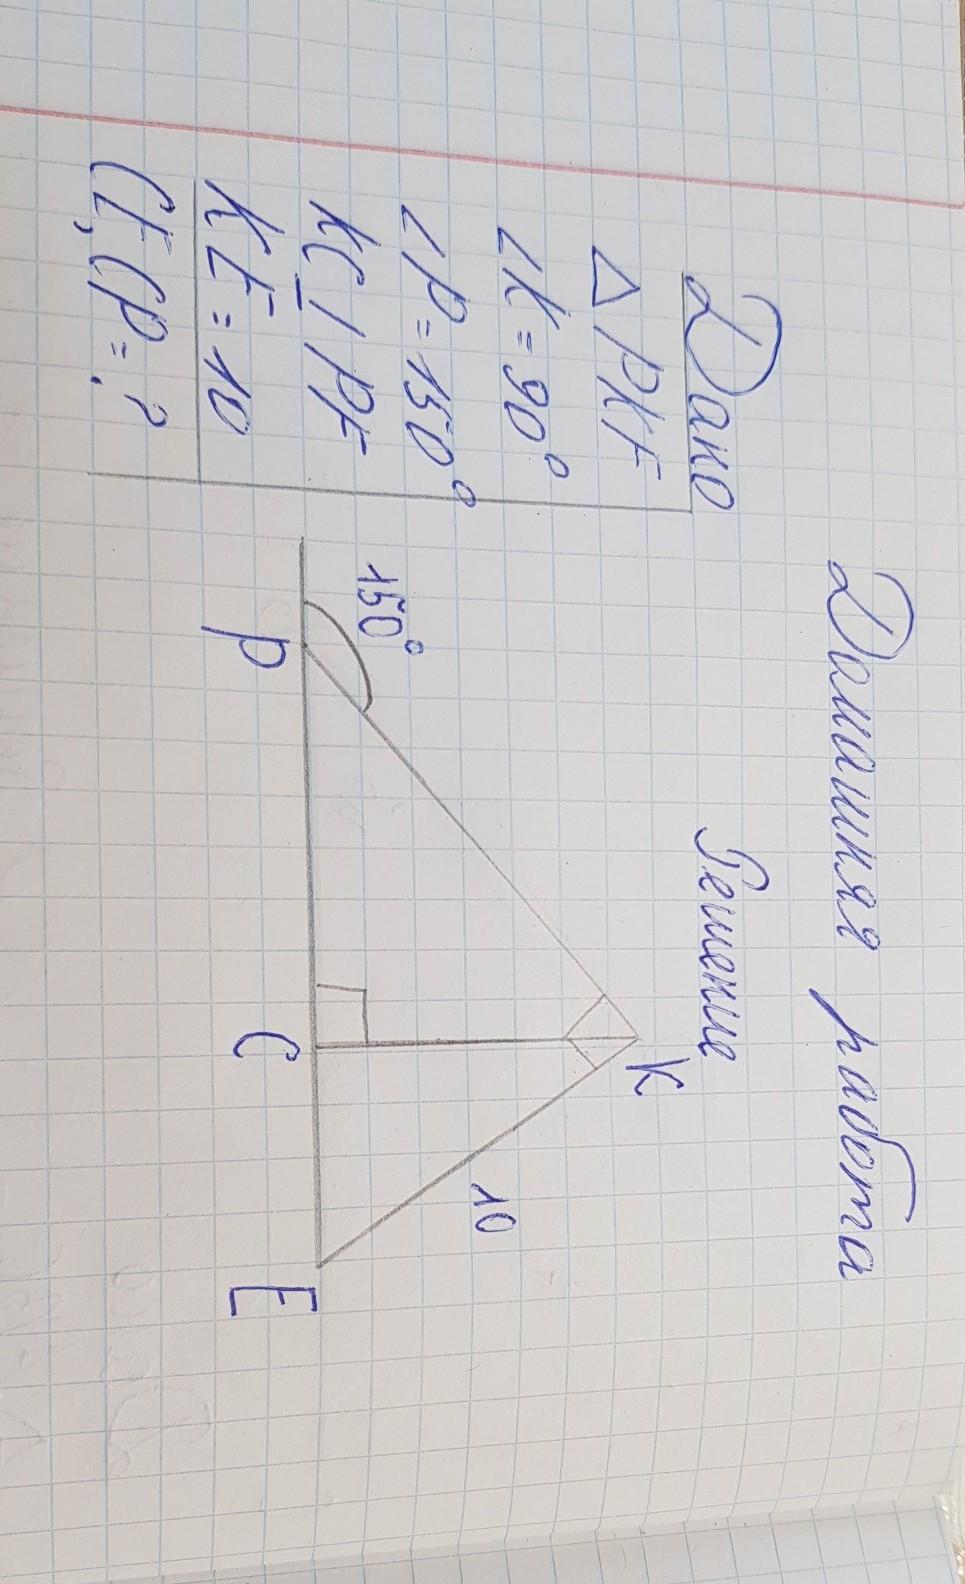 Домашняя работа
Дано
Решение
△ PKE
∠K = 90°
∠P = 150°
KC ⊥ PE
KE = 10
CE, CP = ?
150°
P
C
K
10
E